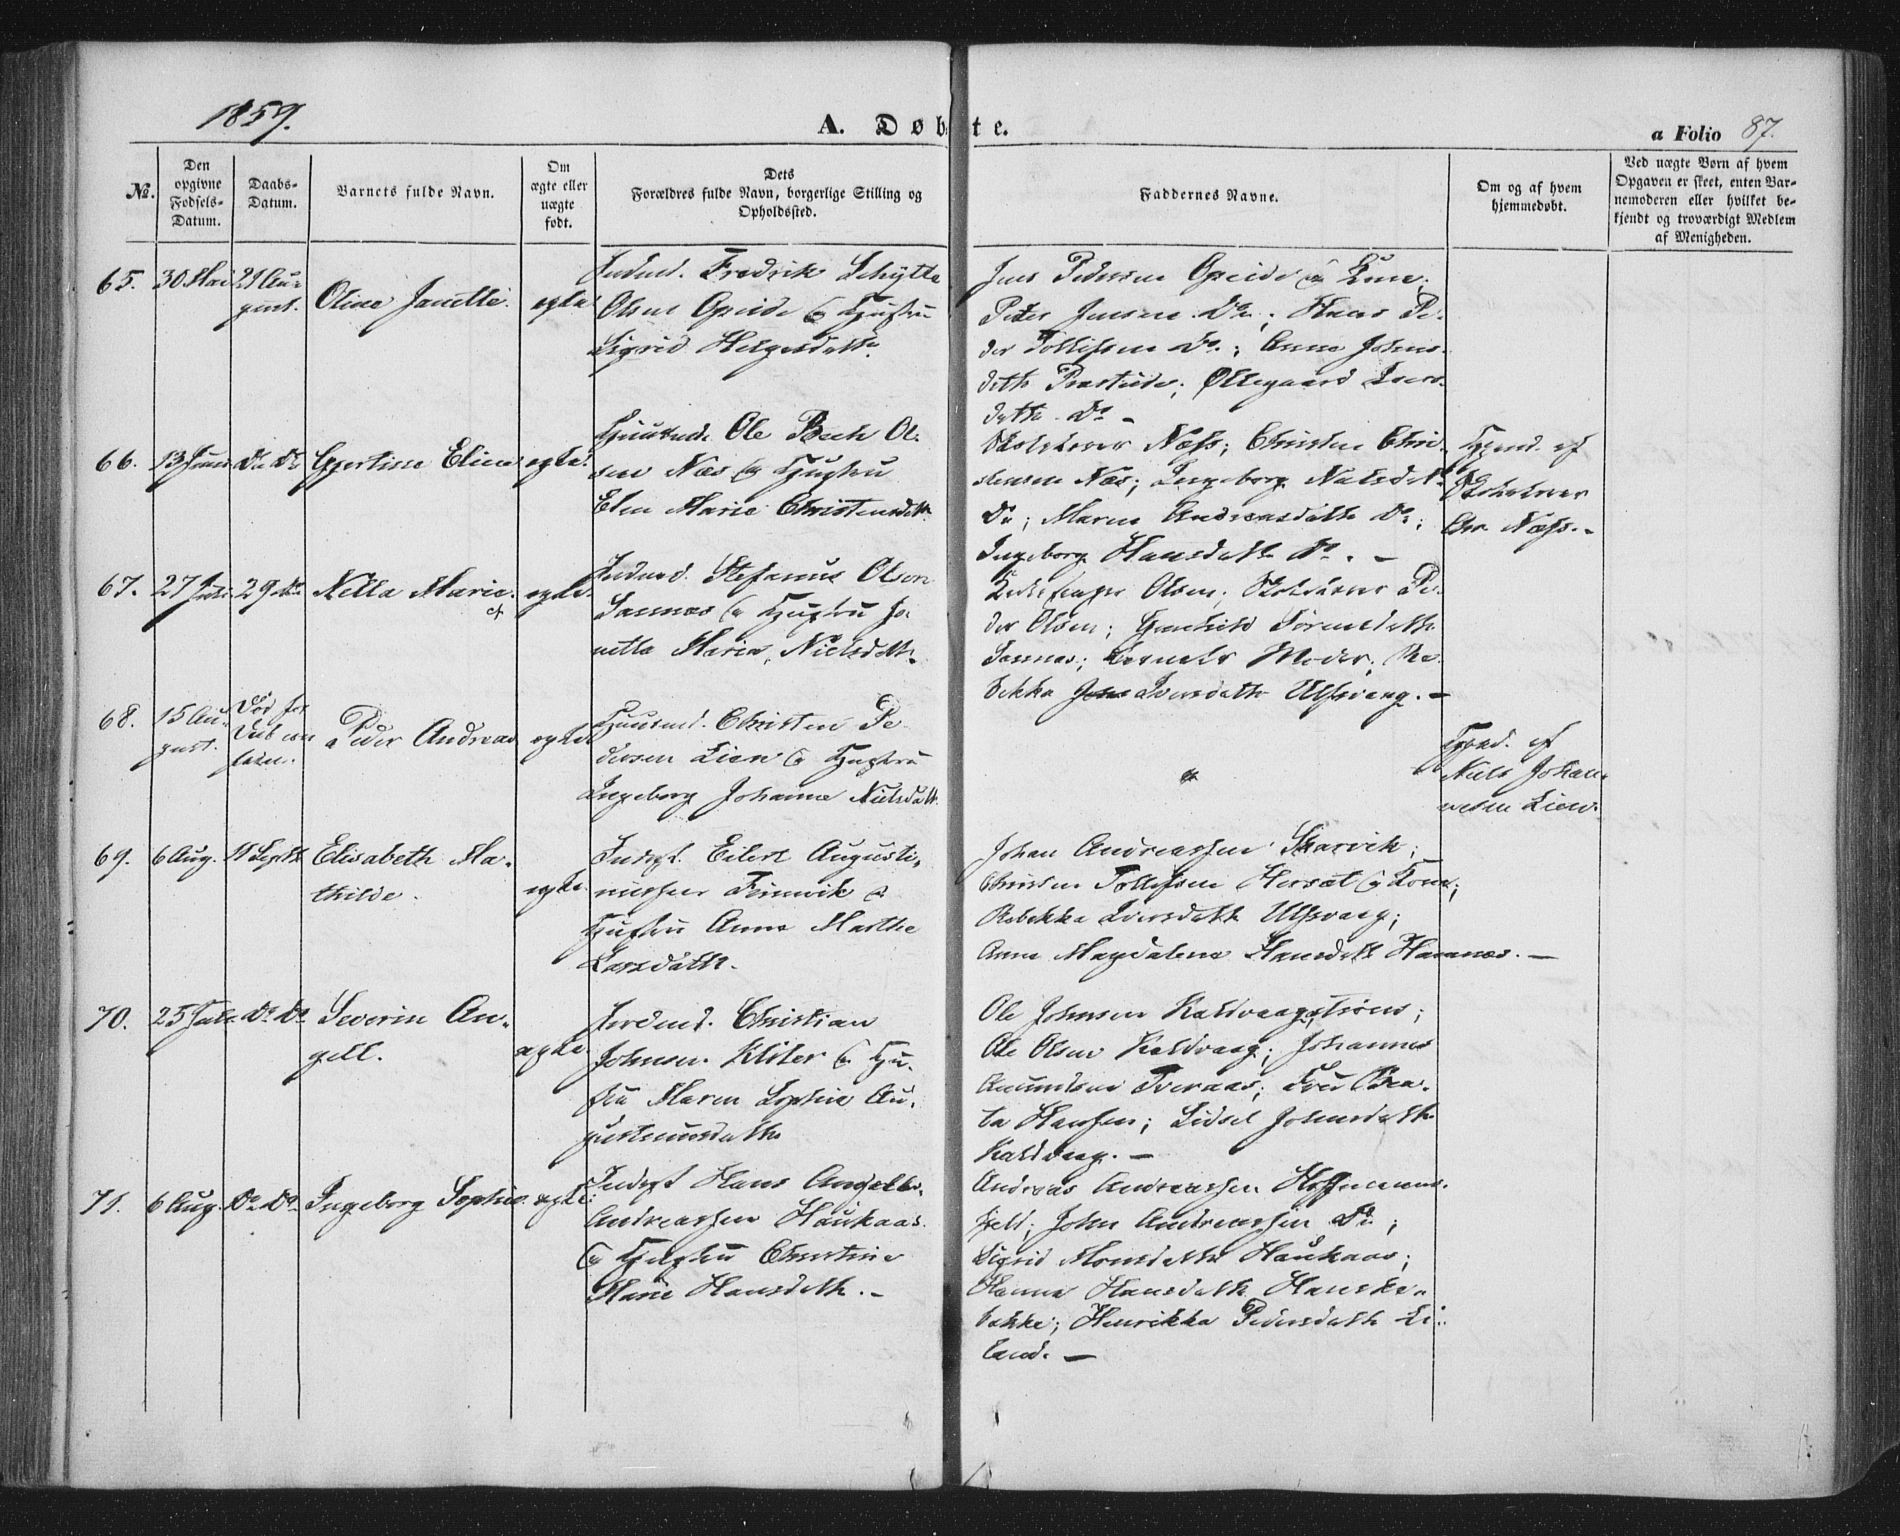 1859.
A. Døbte.
a Folio 87.
No.
Den opgivne Fødsels-Datum.
Daabs-Datum.
Barnets fulde Navn.
Om ægte eller uægte født.
Dets Forældres fulde Navn, borgerlige Stilling og Opholdssted.
Faddernes Navne.
Om og af hvem hjemmedøbt.
Ved uægte Børn af hvem Opgaven er skeet, enten Barnemoderen eller hvilket bekjendt og troværdigt Medlem af Menigheden.
65. 30 Mai 21 Au-
gust.
Oline Janette.
ægte
Fredrik Schytte
Olsen Opeide & Hustru
Sigrid Helgesdatter
Jens Pedersen Opeide &
Peter Jensen Do.; Hans Pe-
der Tollefsen Do.; Anne Johns-
datter; Ollegaard Ivers-
datter Do –
66. 13 Juni Do Do
Eline
ægte
Huusmd. Ole Bech Ol-
sen Næs & Hustru
Elen Marie Christensdatter
Skolelærer Næss; Christen Chri-
stensen Næs; Ingeborg Nielsdatter
Do; Maren Andreasdatter Do;
Ingeborg Hansdatter Do. –
Hjemd. af
Skolelærer
Chr. Næss. –
67. 27 29 Do
Nella Marie
ægte
Stefanus Olsen
Sannæs & Hustru Ja-
netta Maria Nielsdatter
Kirkesanger Olsen; Skolelærer Pe-
der Olsen; Sørensdatter
Sannæs; Barnets Moder; Re-
bekka Iversdatter Ulfsvaag. –
68. 15 Au-
gust.
Død før
Peder Andreas
ægte
Huusmd. Christen Pe-
dersen Lien & Hustru
Ingeborg Johanna Nielsdatter
Hjemd. af
Niels Johan-
nesen Lien.
69. 6 Aug. 11 Septbr
Elisabeth Ma-
thilde.
ægte
Inderst. Eilert Augusti-
nussen Finnvik &
Hustru Anne Marthe
Larsdatter.
Johan Andreassen Skarvik;
Christen Tollefsen Hersæt & Kone;
Rebekka Iversdatter Ulfsvaag;
Anne Magdalena Hansdatter Hamnæs. –
70. 25 Do Do
Severin An-
gell.
ægte
Christian
Johnsen & Hu-
stru Maren Sophie Au-
gustinusdatter
Ole Johnsen Kaldvaag;
Ole Olsen Kaldvaag; Johannes
Amundsen Tveraas; Fru Bea-
ta Hanssen; Sidsel Johnsdatter
Kaldvaag. –
71. 6 Aug. Do Do
Ingeborg Sophie
ægte
Inderst Hans Angell
Andreassen Haukaas
& Hustru Christine
Marie Hansdatter. –
Andreas Andreassen Hoffmanns-
; John Andreassen Do;
Sigrid Monsdatter Haukaas;
Hanna Hansdatter Hanske-
bakke; Henrikka Pedersdatter Li-
land. –